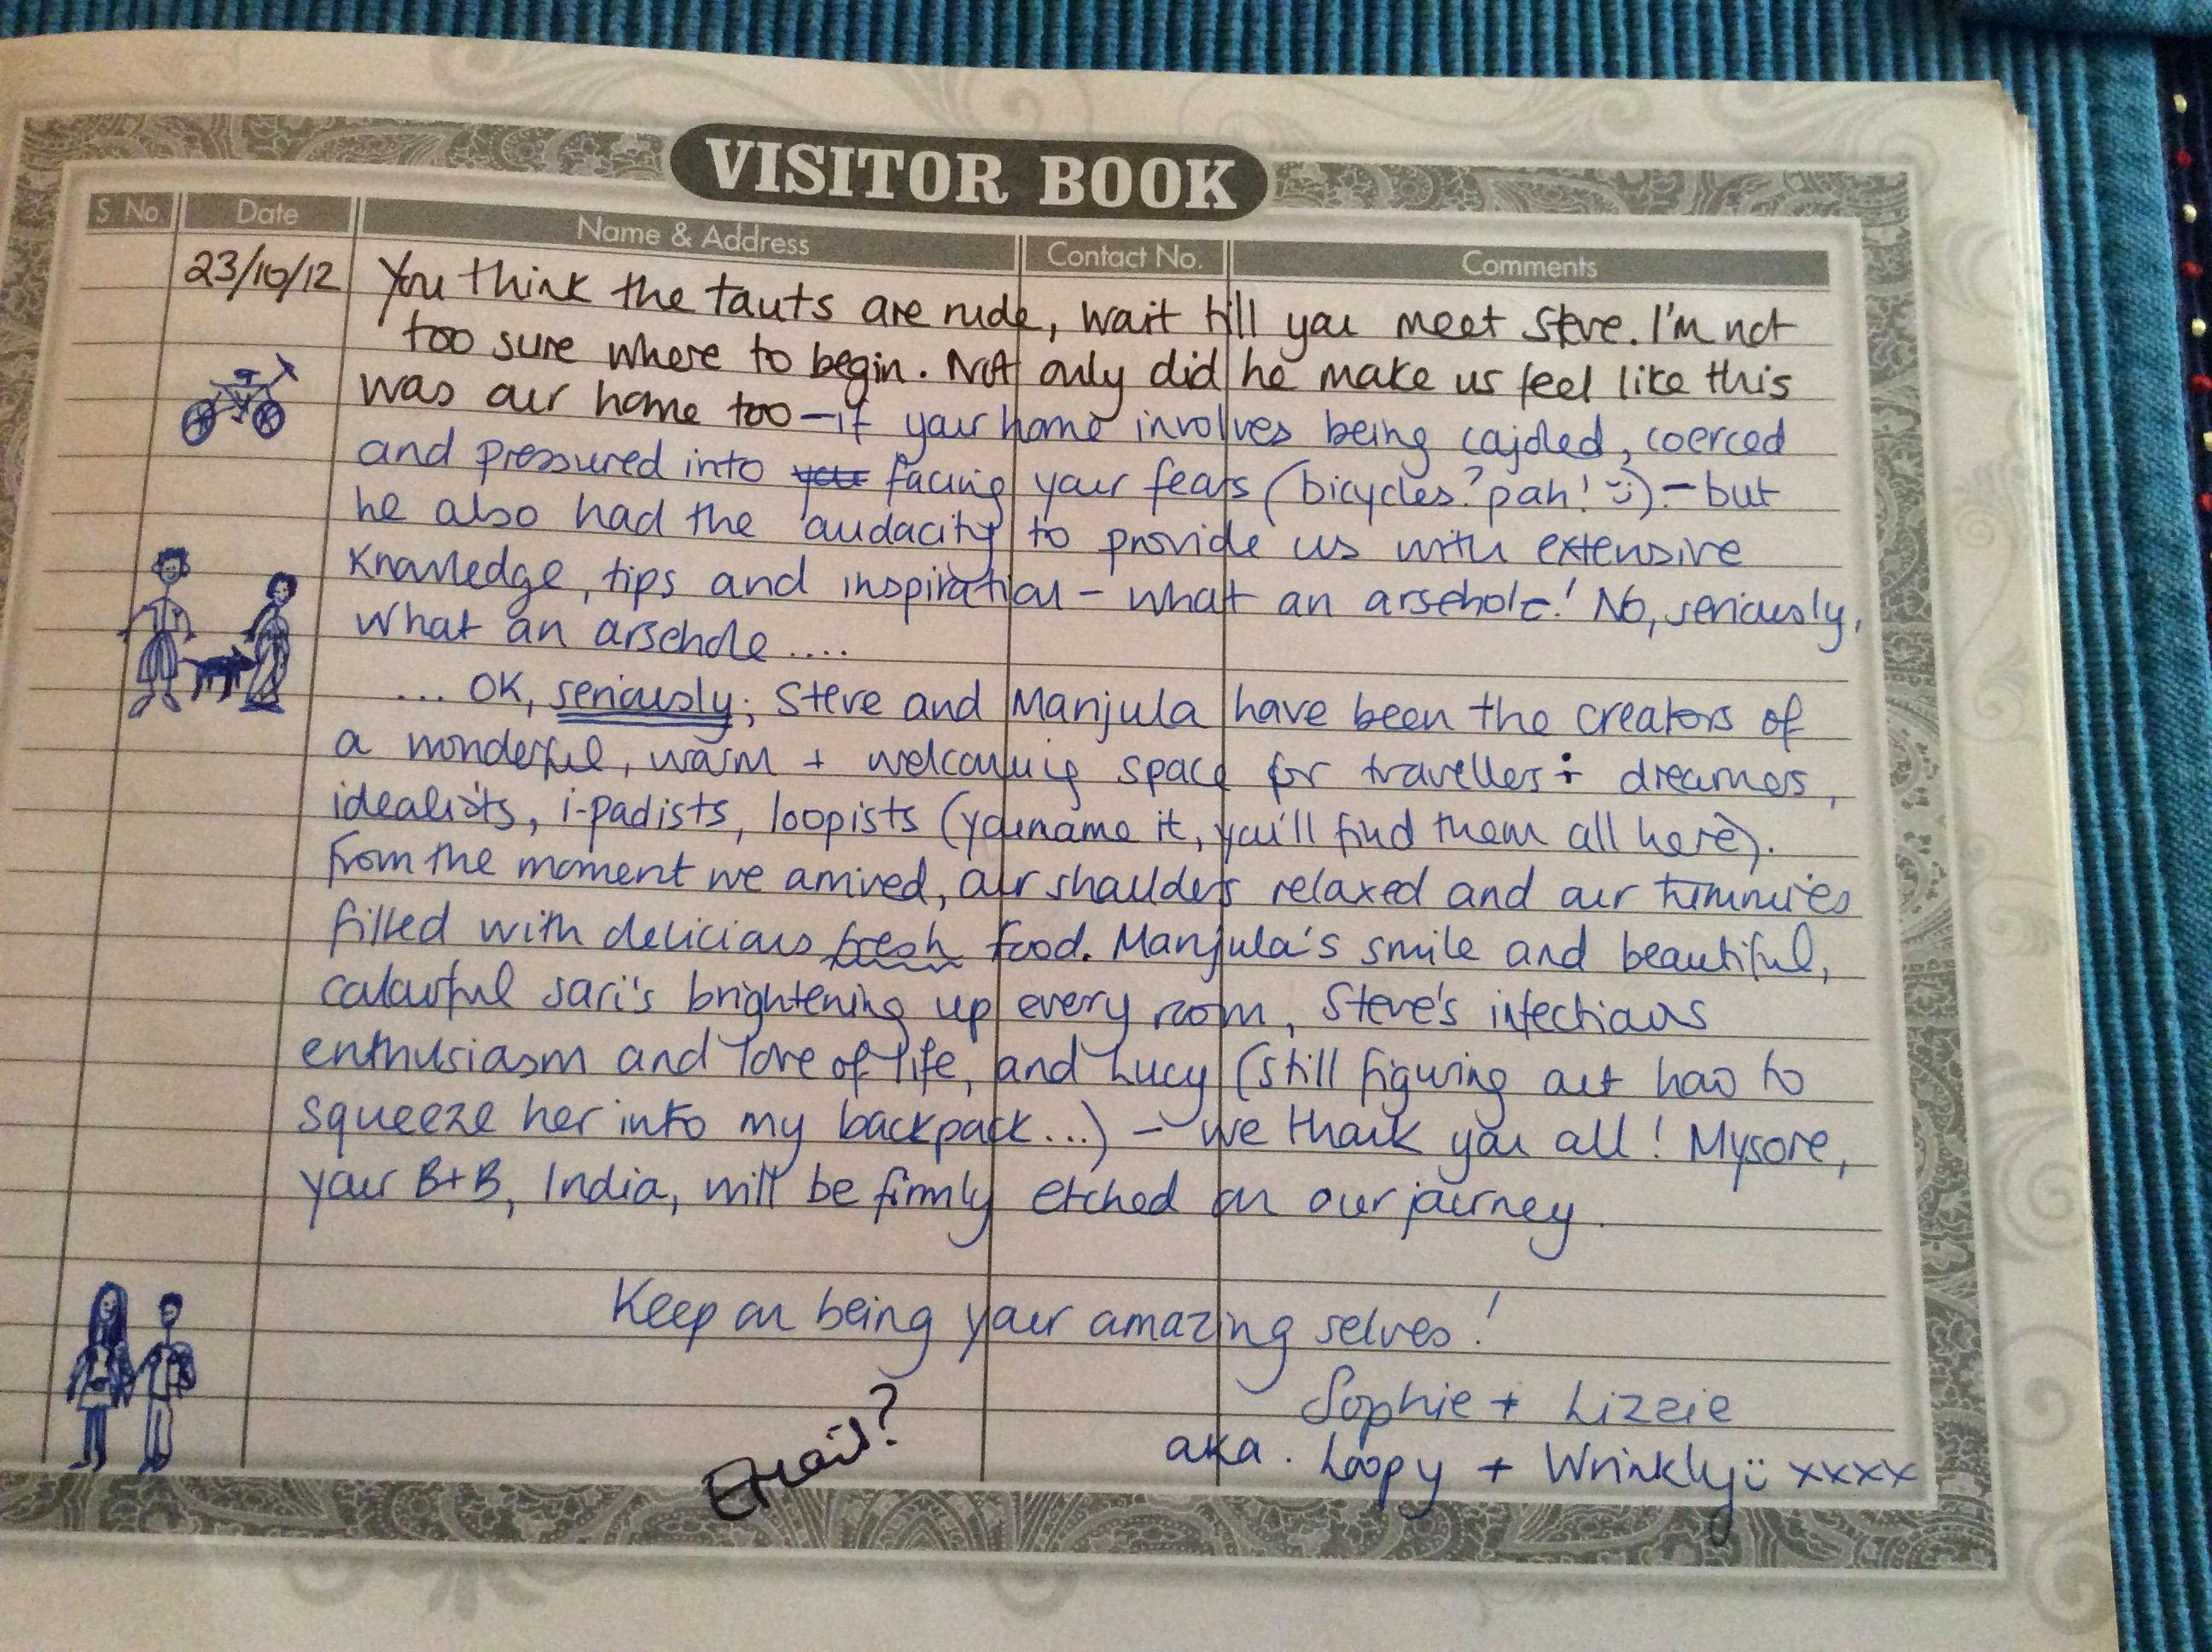 VISITOR BOOK
S. No. Date Name & Address Contact No. Comments
23/10/12 You think the tauts are rude, wait till you meet Steve. I'm not
too sure where to begin. Not only did he make us feel like this
was our home too – if your home involves being cajoled, coerced
and pressured into your facing your fears (bicycles? pah! :)) – but
he also had the audacity to provide us with extensive
knowledge, tips and inspiration – what an arsehole! No, seriously,
what an arsehole ....
... OK, seriously; Steve and Manjula have been the creators of
a wonderful, warm + welcoming space for travellers: dreamers,
idealists, i-padists, loopists (you name it, you'll find them all here).
From the moment we arrived, our shoulders relaxed and our tummies
filled with delicious fresh food. Manjula's smile and beautiful,
colourful sari's brightening up every room, Steve's infectious
enthusiasm and love of life, and Lucy (still figuring out how to
squeeze her into my backpack...) – we thank you all! Mysore,
your B+B, India, will be firmly etched on our journey.
Keep on being your amazing selves!
Sophie + Lizzie
aka. Loopy + Wrinkly :) xxxx
Email?